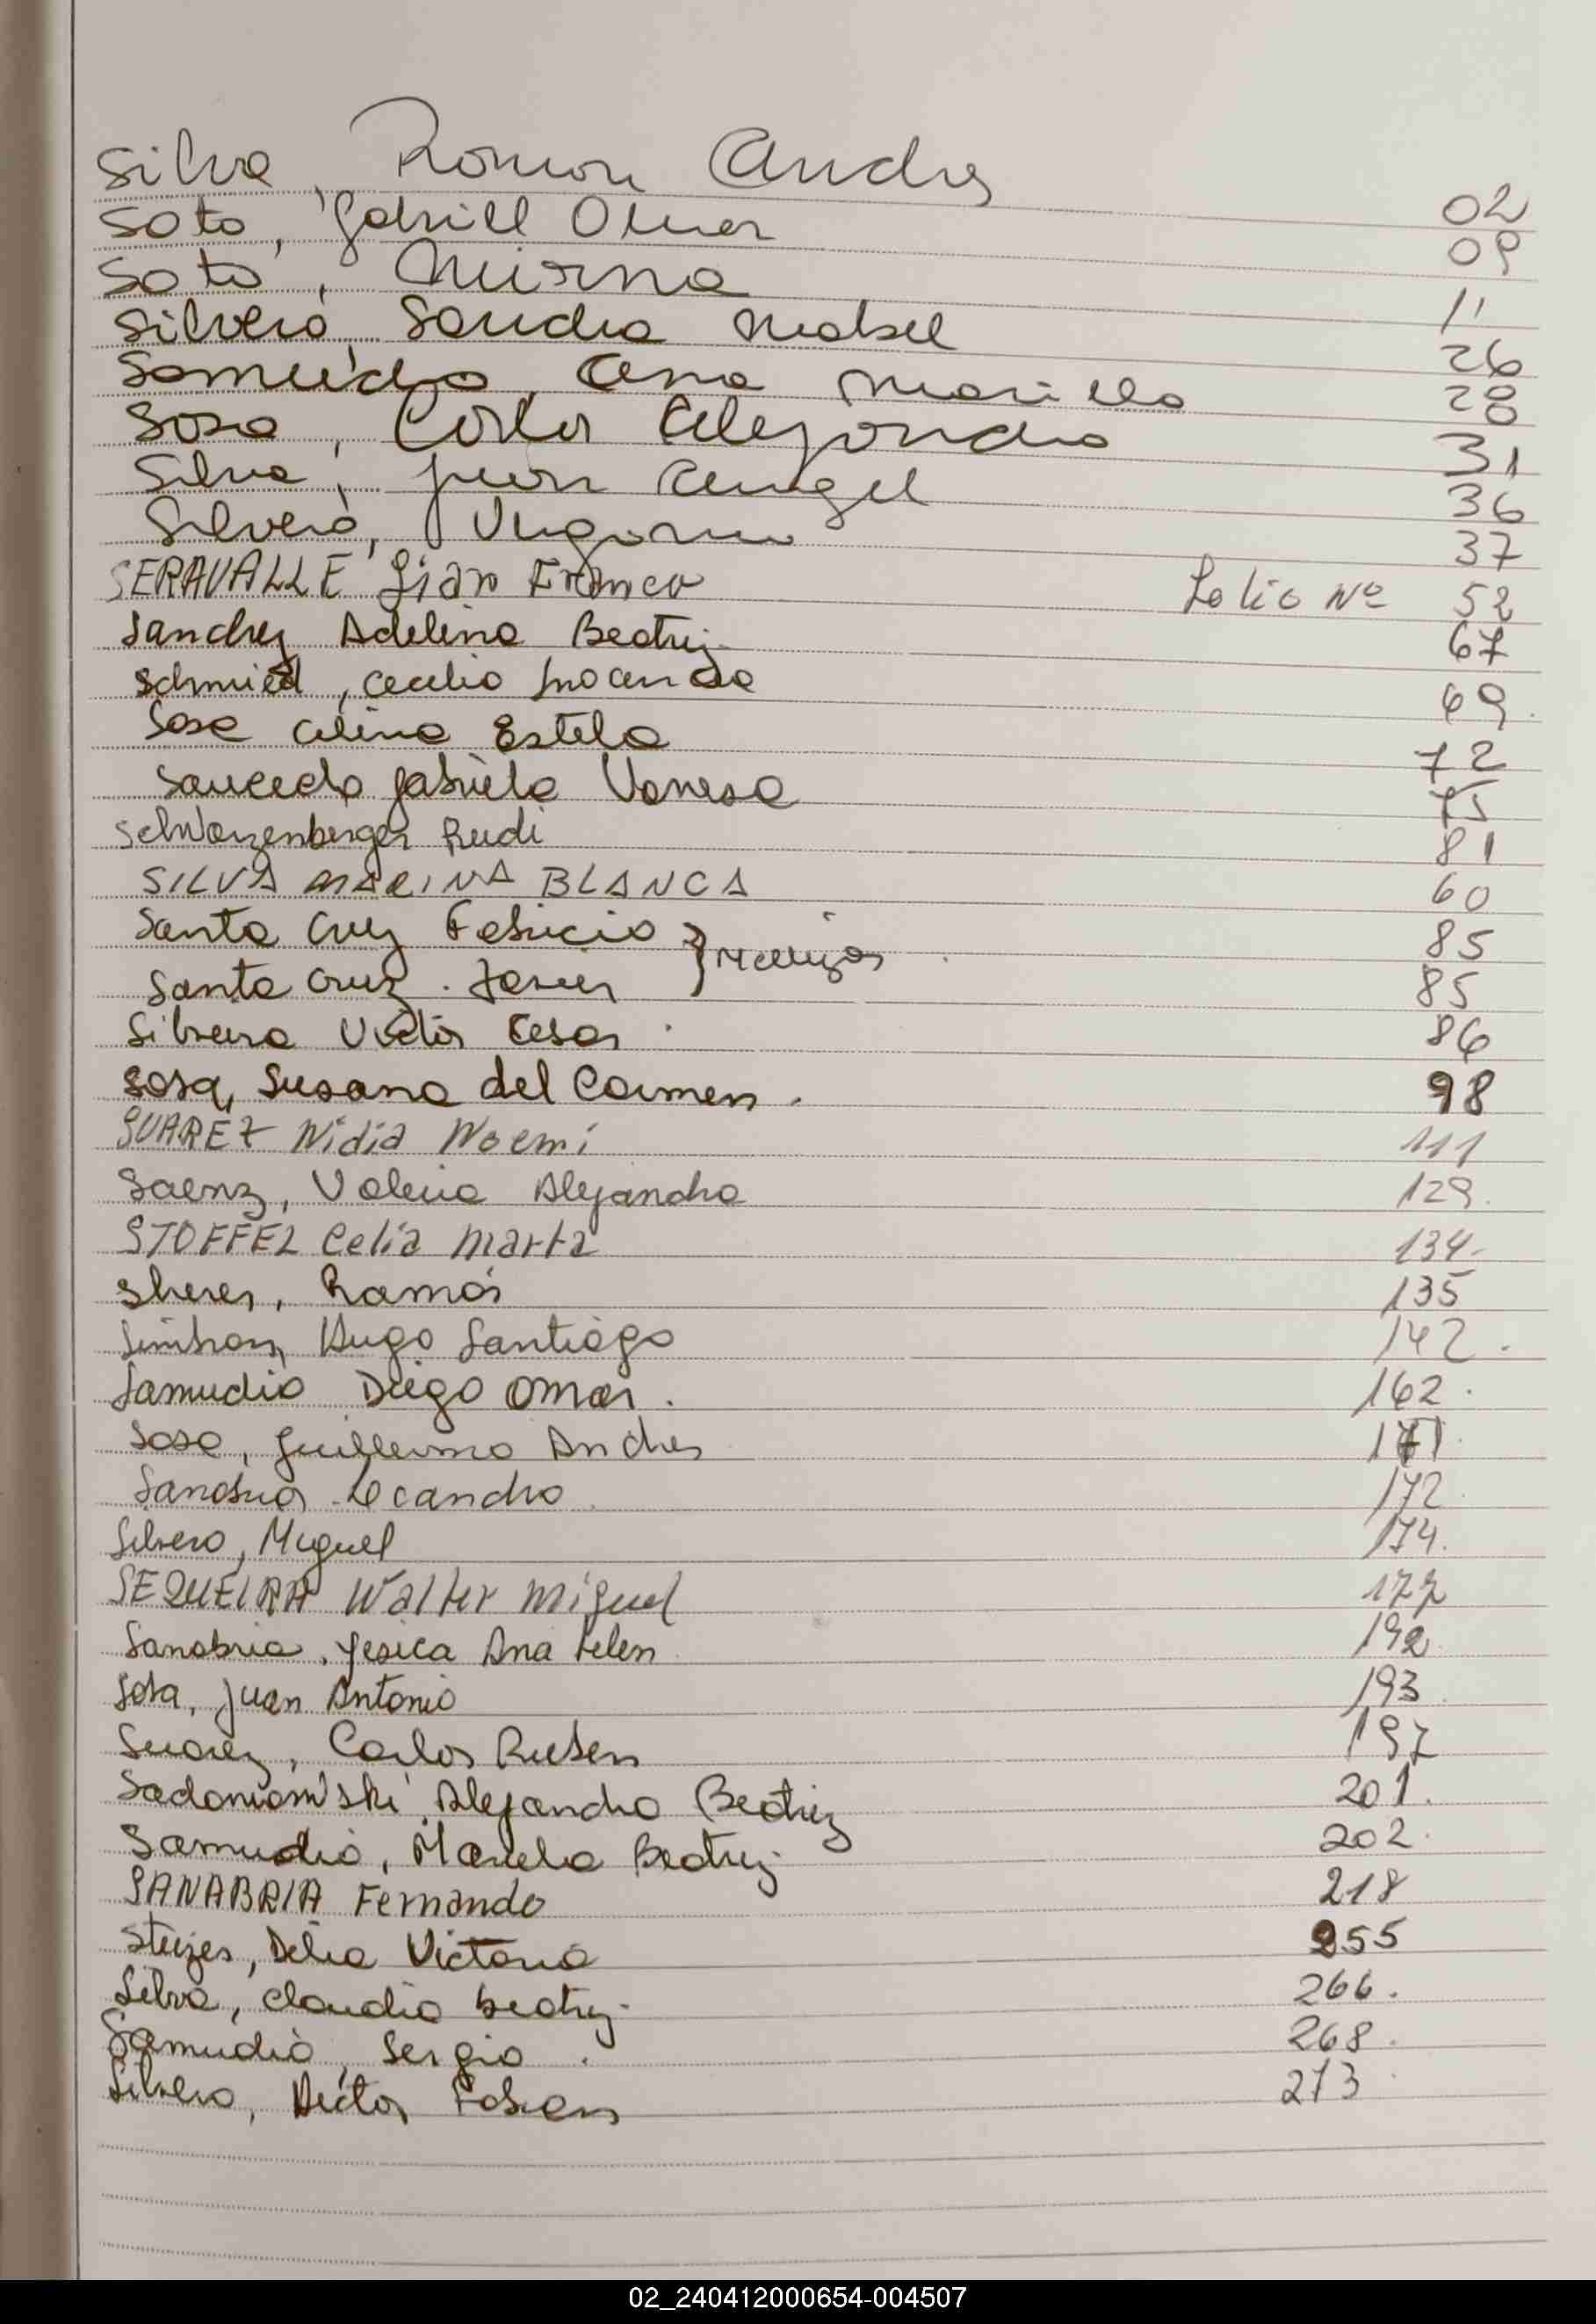 Silva, Ramon Andres 02
Soto, Gabriel Omar 09
Soto, Mirna 11
Silvero, Sandra Mabel 26
Samudio, Ana Mariela 28
Sosa, Carlos Alejandro 31
Silva, Juan Angel 36
Silvero, 37
SERAVALLE Gian Franco Folio Nº 52
Sanchez Adelina Beatriz 67
Schmied, Cecilia Inocencia 69
Sosa Celina Estela 72
Saucedo Gabriela Vanesa 75
Schwarzenberger Rudi 81
SILVA MARINA BLANCA 60
Santa Cruz Fabricio 85
} Mellizos
Santa Cruz. Javier 85
Silveira Victor Cesar 86
Sosa, Susana del Carmen. 98
SUAREZ Nidia Noemi 111
Saenz, Valeria Alejandra 129.
STOFFEL Celia Marta 134-
Sherer, Ramón 135
Hugo Santiago 142.
Samudio Diego Omar. 162.
Sosa, Guillermo Andres 171.
Sanabria Leandro 172
Silvero, Miguel 174.
SEQUEIRA Walter Miguel 177
Sanabria, Yesica Ana Belen 192
Sosa, Juan Antonio 193
Suarez, Carlos Ruben 197
Alejandra Beatriz 201.
Samudio, Mariela Beatriz 202.
SANABRIA Fernando 218
Delia Victoria 255
Silva, Claudia Beatriz 266.
Samudio, Sergio. 268.
Silvero, Hector Fabian 273
02_240412000654-004507